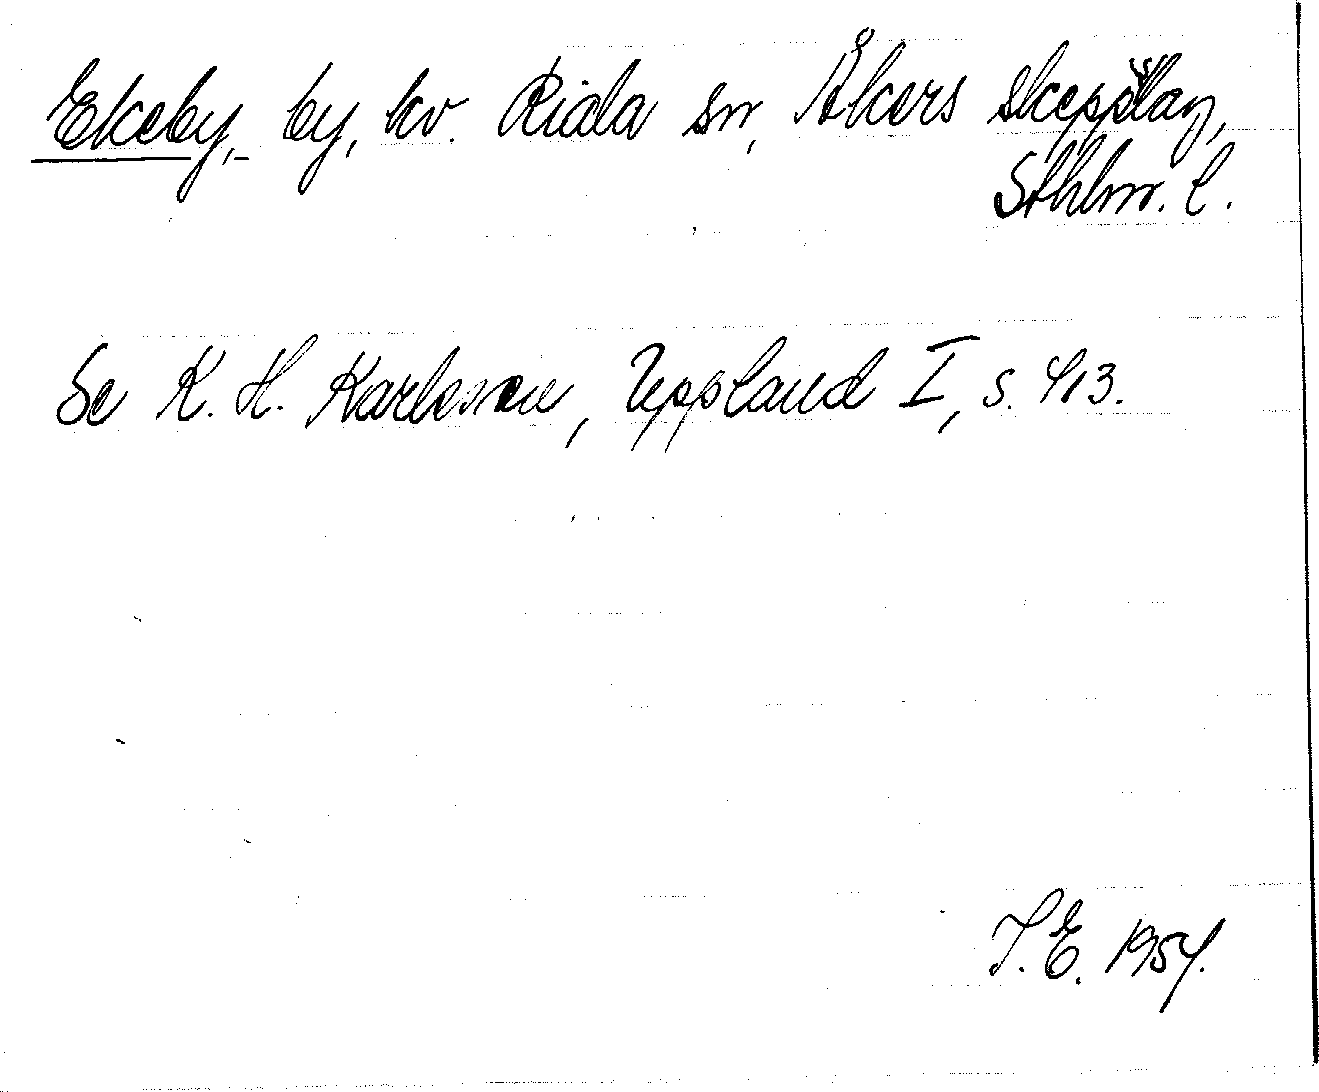 Ekeby, by, kv. Riala sn, Åkers skeppslag,
Sthlm. l.
Se K. H. Karlsson, Uppland I, s. 413.
I. E. 1954.